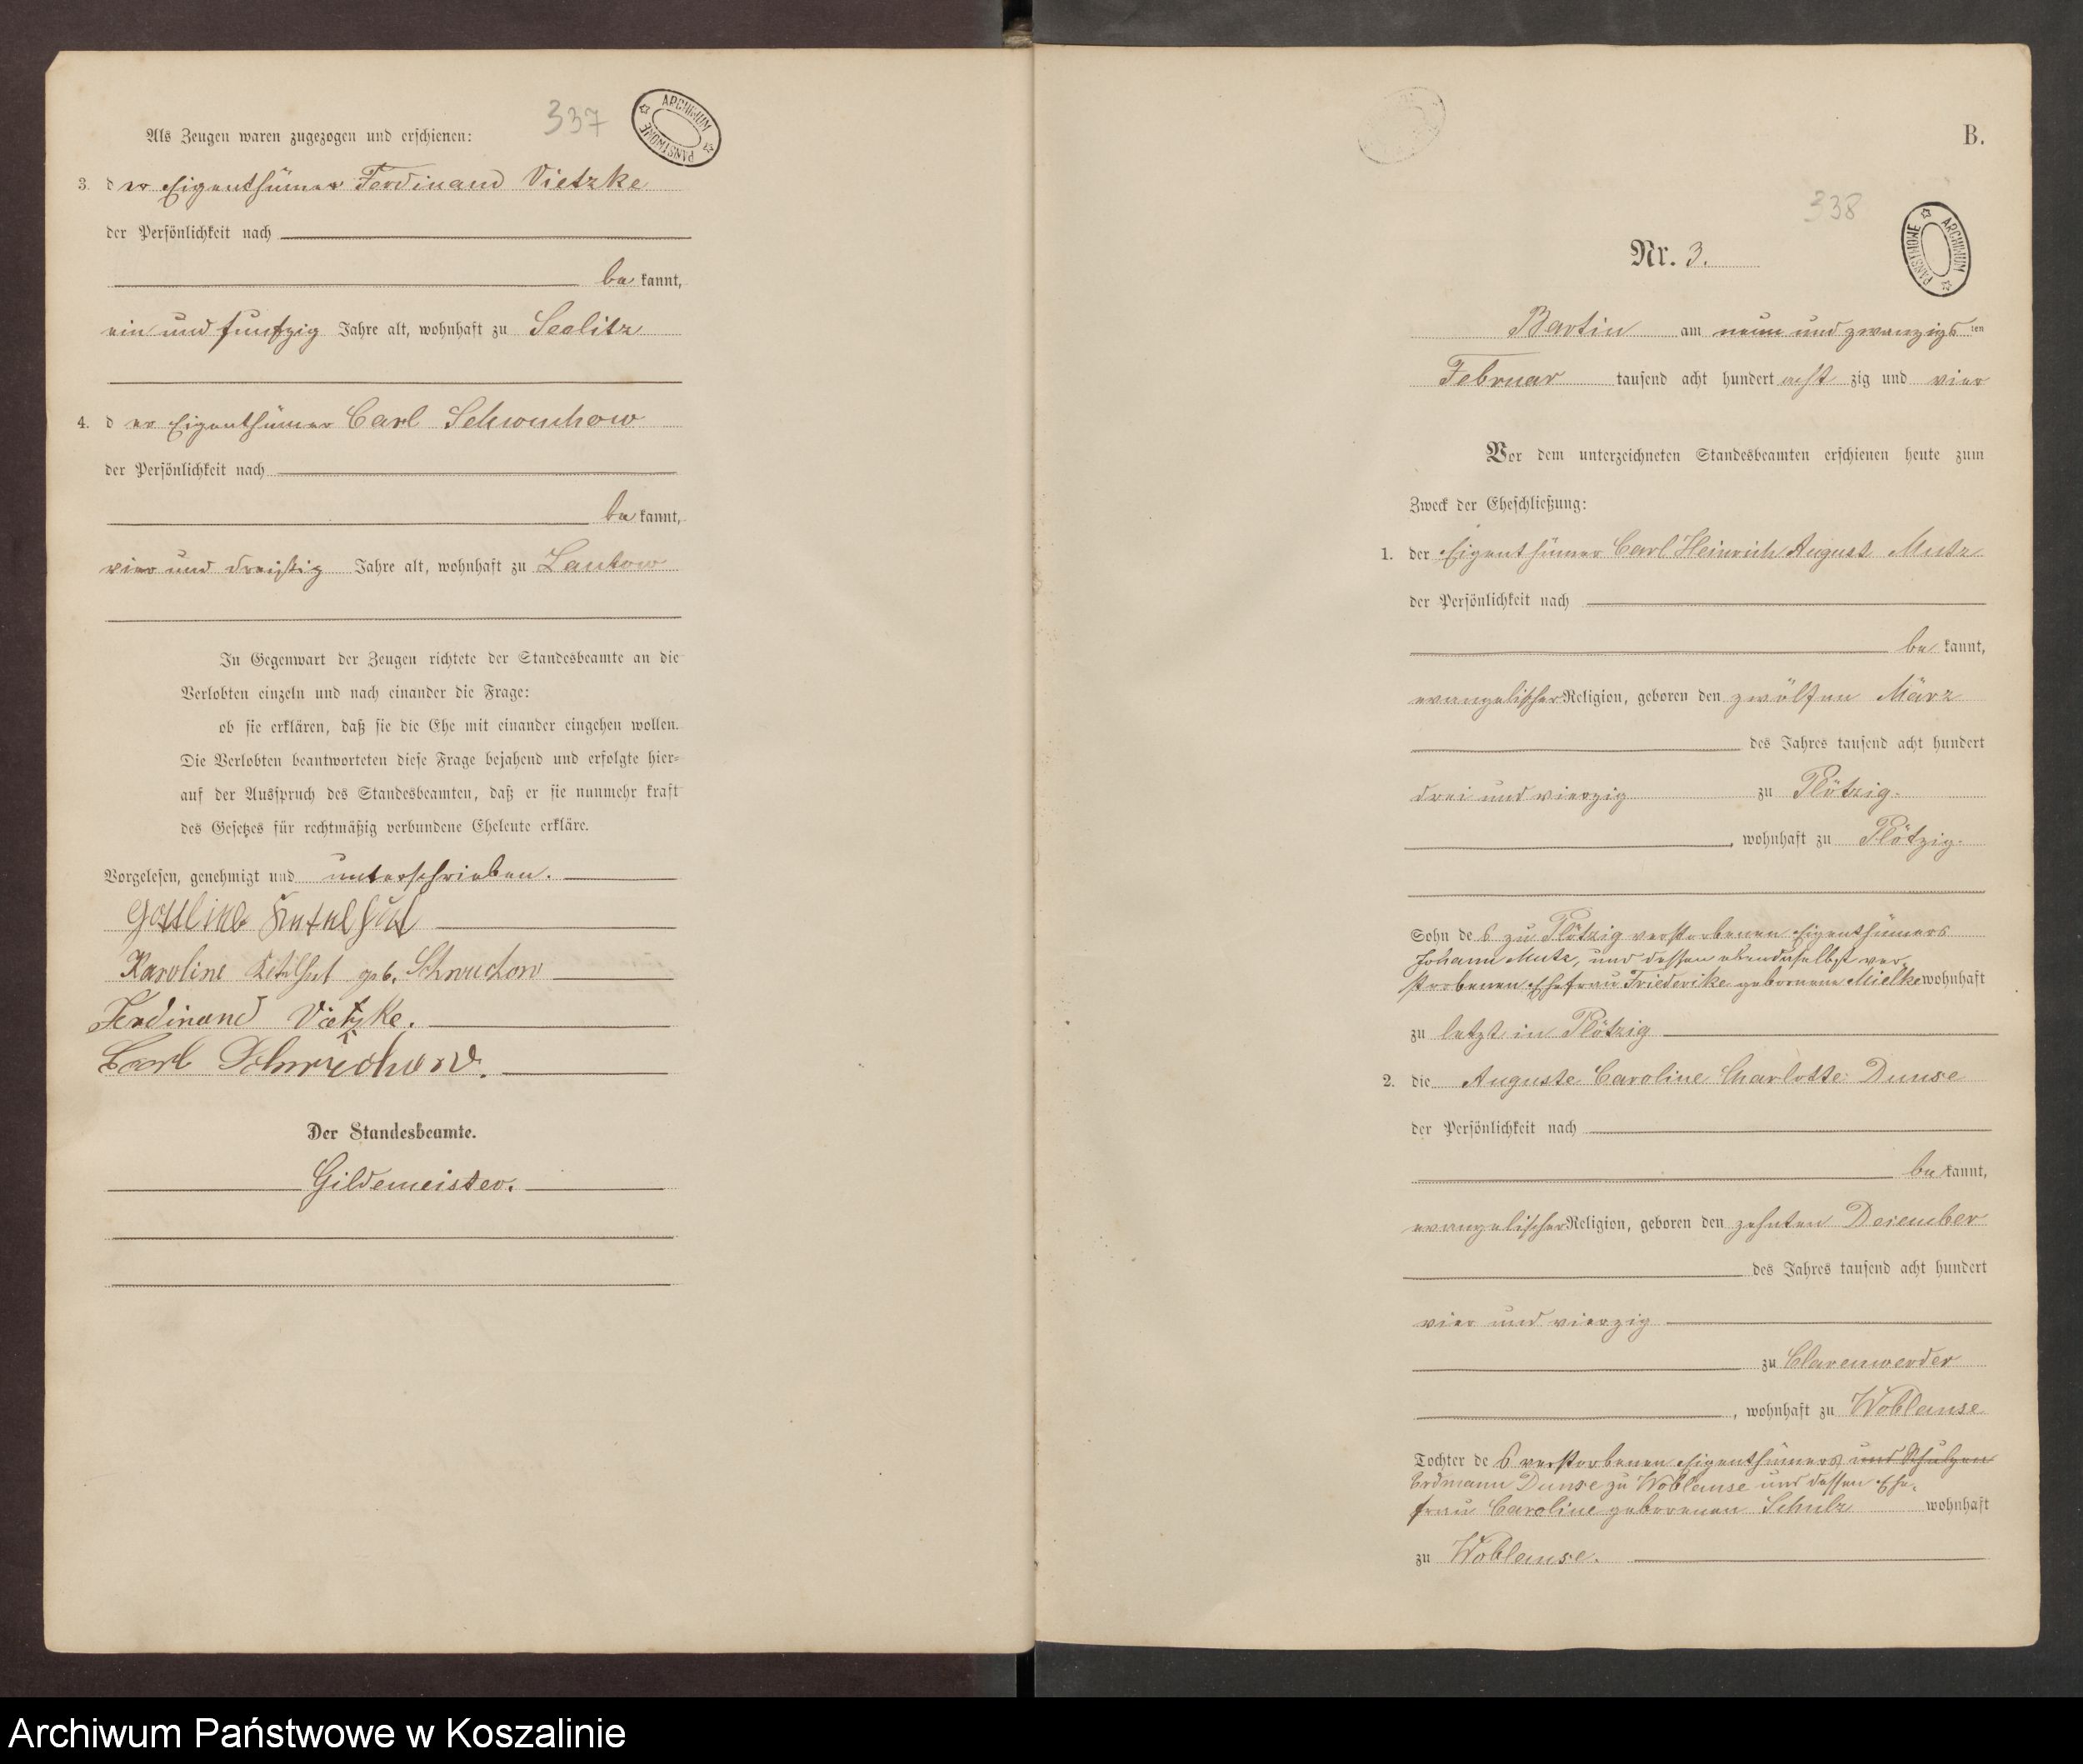 337
ARCHIWUM PAŃSTWOWE
Als Zeugen waren zugezogen und erschienen:
3. der Eigenthümer Ferdinand Vietzke
der Persönlichkeit nach
bekannt,
ein und funfzig Jahre alt, wohnhaft zu Seelitz
4. der Eigenthümer Carl Schwuchow
der Persönlichkeit nach
bekannt,
vier und dreißig Jahre alt, wohnhaft zu Lantow
In Gegenwart der Zeugen richtete der Standesbeamte an die
Verlobten einzeln und nach einander die Frage:
ob sie erklären, daß sie die Ehe mit einander eingehen wollen.
Die Verlobten beantworteten diese Frage bejahend und erfolgte hier-
auf der Ausspruch des Standesbeamten, daß er sie nunmehr kraft
des Gesetzes für rechtmäßig verbundene Eheleute erkläre.
Vorgelesen, genehmigt und unterschrieben.
Gottlieb
Karoline geb. Schwuchow
Ferdinand Vietzke.
Carl Schwuchow.
Der Standesbeamte.
Gildemeister.
B.
338
ARCHIWUM PAŃSTWOWE
Nr. 3.
Bartin am neun und zwanzigsten
Februar tausend acht hundert achtzig und vier
Vor dem unterzeichneten Standesbeamten erschienen heute zum
Zweck der Eheschließung:
1. der Eigenthümer Carl Heinrich August Mutz
der Persönlichkeit nach
bekannt,
evangelischer Religion, geboren den zwölften März
des Jahres tausend acht hundert
drei und vierzig zu Plötzig.
, wohnhaft zu Plötzig.
Sohn des zu Plötzig verstorbenen Eigenthümers
Johann Mutz, und dessen ebendaselbst ver-
storbenen Ehefrau Friederike geborenene Mielke wohnhaft
zu letzt in Plötzig
2. die Auguste Caroline Charlotte Dunse
der Persönlichkeit nach
bekannt,
evangelischer Religion, geboren den zehnten Dezember
des Jahres tausend acht hundert
vier und vierzig
zu Clarenwerder
, wohnhaft zu Woblanse
Tochter des verstorbenen Eigenthümers und Schulzen
Erdmann Dunse zu Woblanse und dessen Ehe-
frau Caroline geborenen Schulz wohnhaft
zu Woblanse.
Archiwum Państwowe w Koszalinie